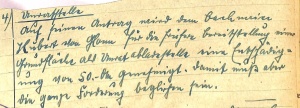 4) Unratstelle
Auf seinen Antrag wird dem Bachmeier
Hubert von Ham für die frühere Bereitstellung einer
Grundfläche als Unratabladestelle eine Entschädig-
ung von 50.- DM genehmigt. Damit muß aber
die ganze Forderung beglichen sein.